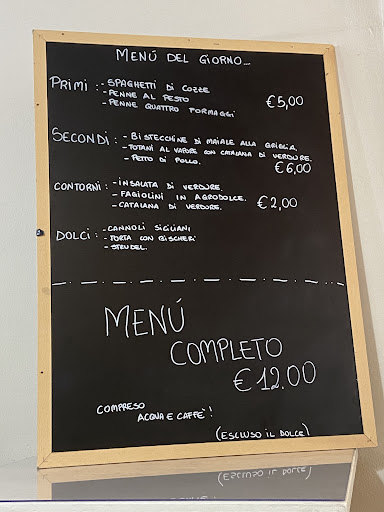 MENÚ DEL GIORNO...
PRIMI : - SPAGHETTI DI COZZE
- PENNE AL PESTO
- PENNE QUATTRO FORMAGGI
€5,00
SECONDI : - BISTECCHINE DI MAIALE ALLA GRIGLIA,
- TOTANI AL VAPORE CON CATALANA DI VERDURE.
- PETTO DI POLLO.
€6,00
CONTORNI : - INSALATA DI VERDURE.
- FAGIOLINI IN AGRODOLCE.
- CATALANA DI VERDURE.
€2,00
DOLCI : - CANNOLI SICILIANI
- TORTA CON BISCHERI
- STRUDEL.
MENÚ
COMPLETO
€12.00
COMPRESO
ACQUA E CAFFE'!
(ESCLUSO IL DOLCE)